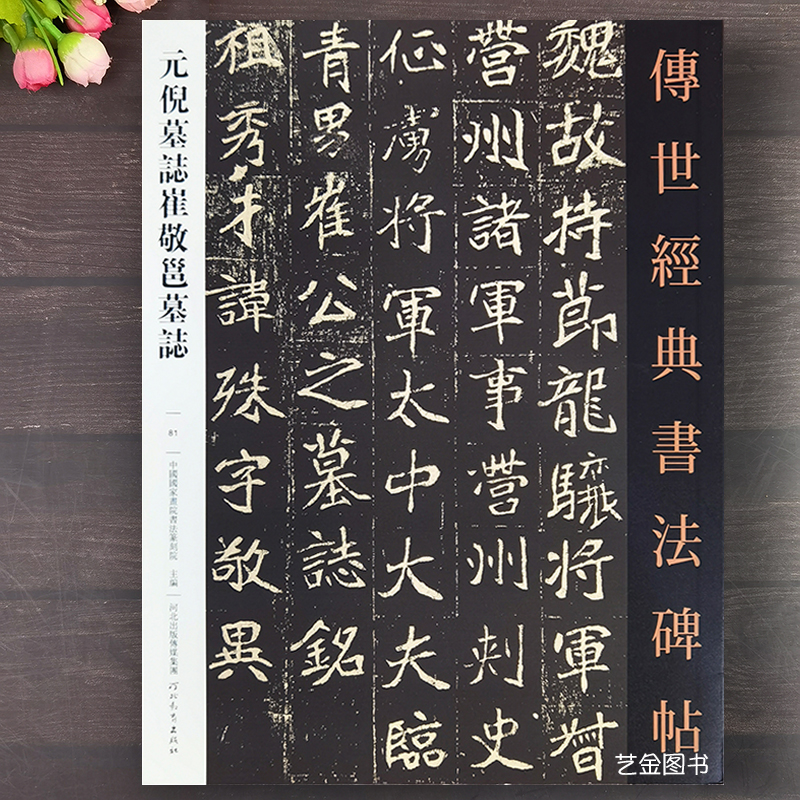 傳世經典書法碑帖
魏故持節龍驤將軍督
營州諸軍事營州刾史
征虜將軍太中大夫臨
青男崔公之墓誌銘
祖秀才諱殊字敬異
元倪墓誌崔敬邕墓誌
81
中國國家畫院書法篆刻院 主編
河北出版傳媒集團
河北教育出版社
艺金图书